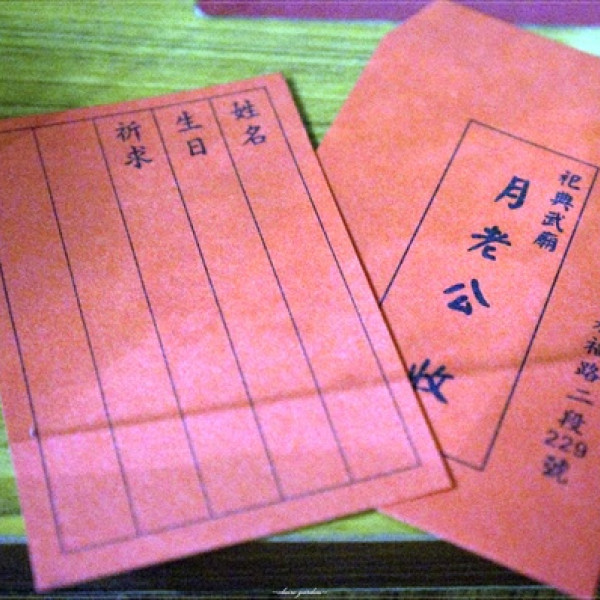 姓名
生日
祈求
永福路二段229號
祀典武廟
月老公 收